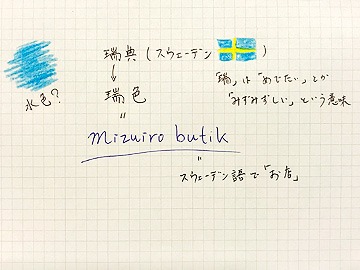 瑞典(スウェーデン)
↓
瑞色
水色?
「瑞」は「めでたい」とか
「みずみずしい」という意味
〃
mizuiro butik
〃
スウェーデン語で「お店」